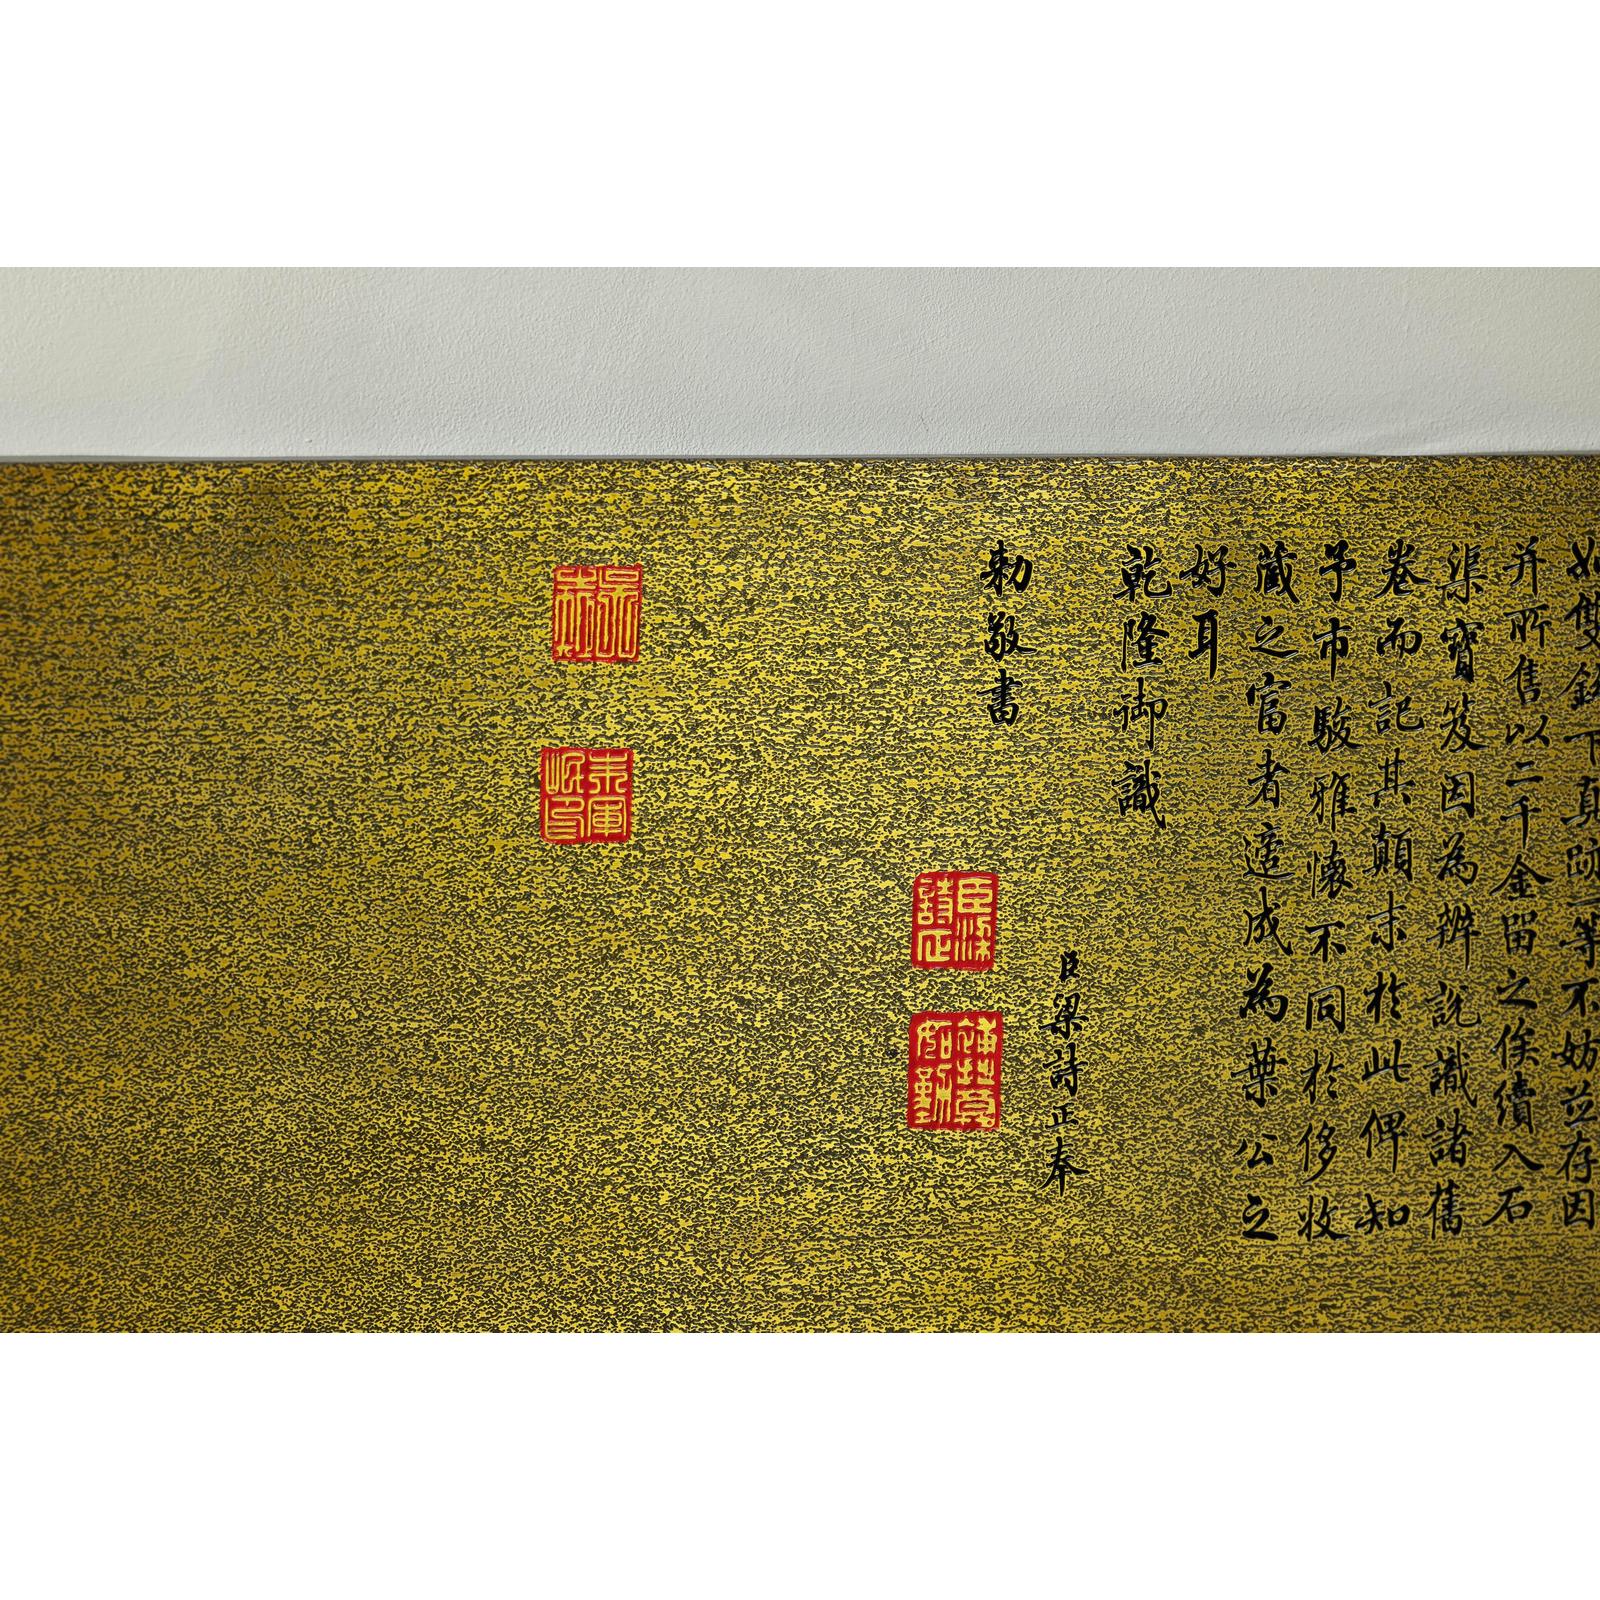 如雙鉤下真跡一等不妨並存因
并所售以二千金留之俟續入石
渠寶笈因為辨說識諸舊
卷而記其顛末於此俾知
予市駿雅懷不同於侈收
藏之富者適成為葉公之
好耳
乾隆御識
臣梁詩正奉
勅敬書
臣梁詩正